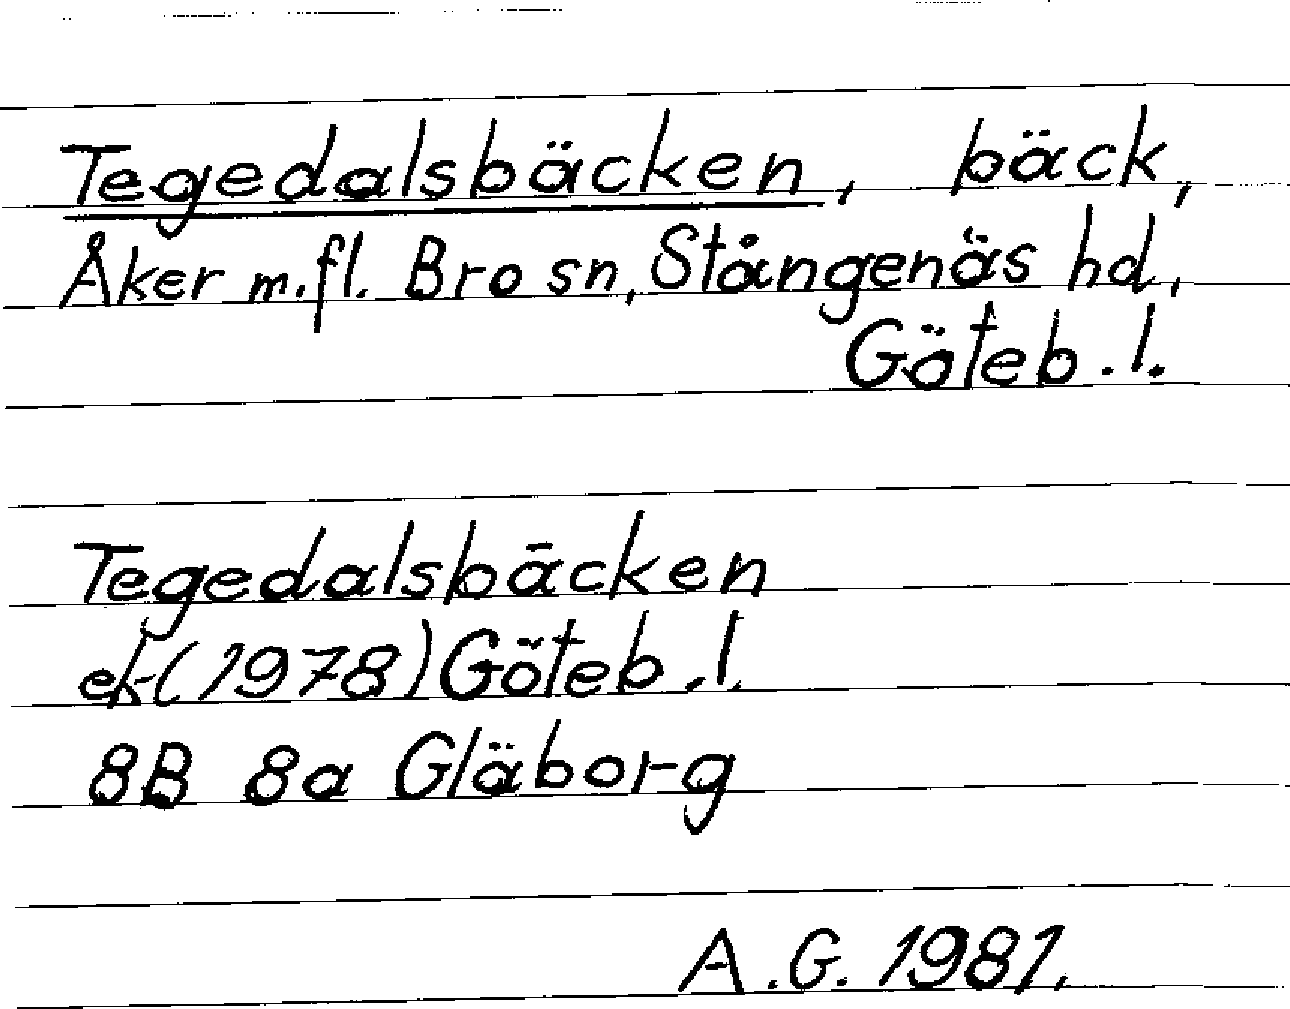 Tegedalsbäcken, bäck,
Åker m.fl. Bro sn, Stångenäs hd,
Göteb.l.
Tegedalsbäcken
ek (1978) Göteb.l.
8B 8a Gläborg
A.G. 1981.